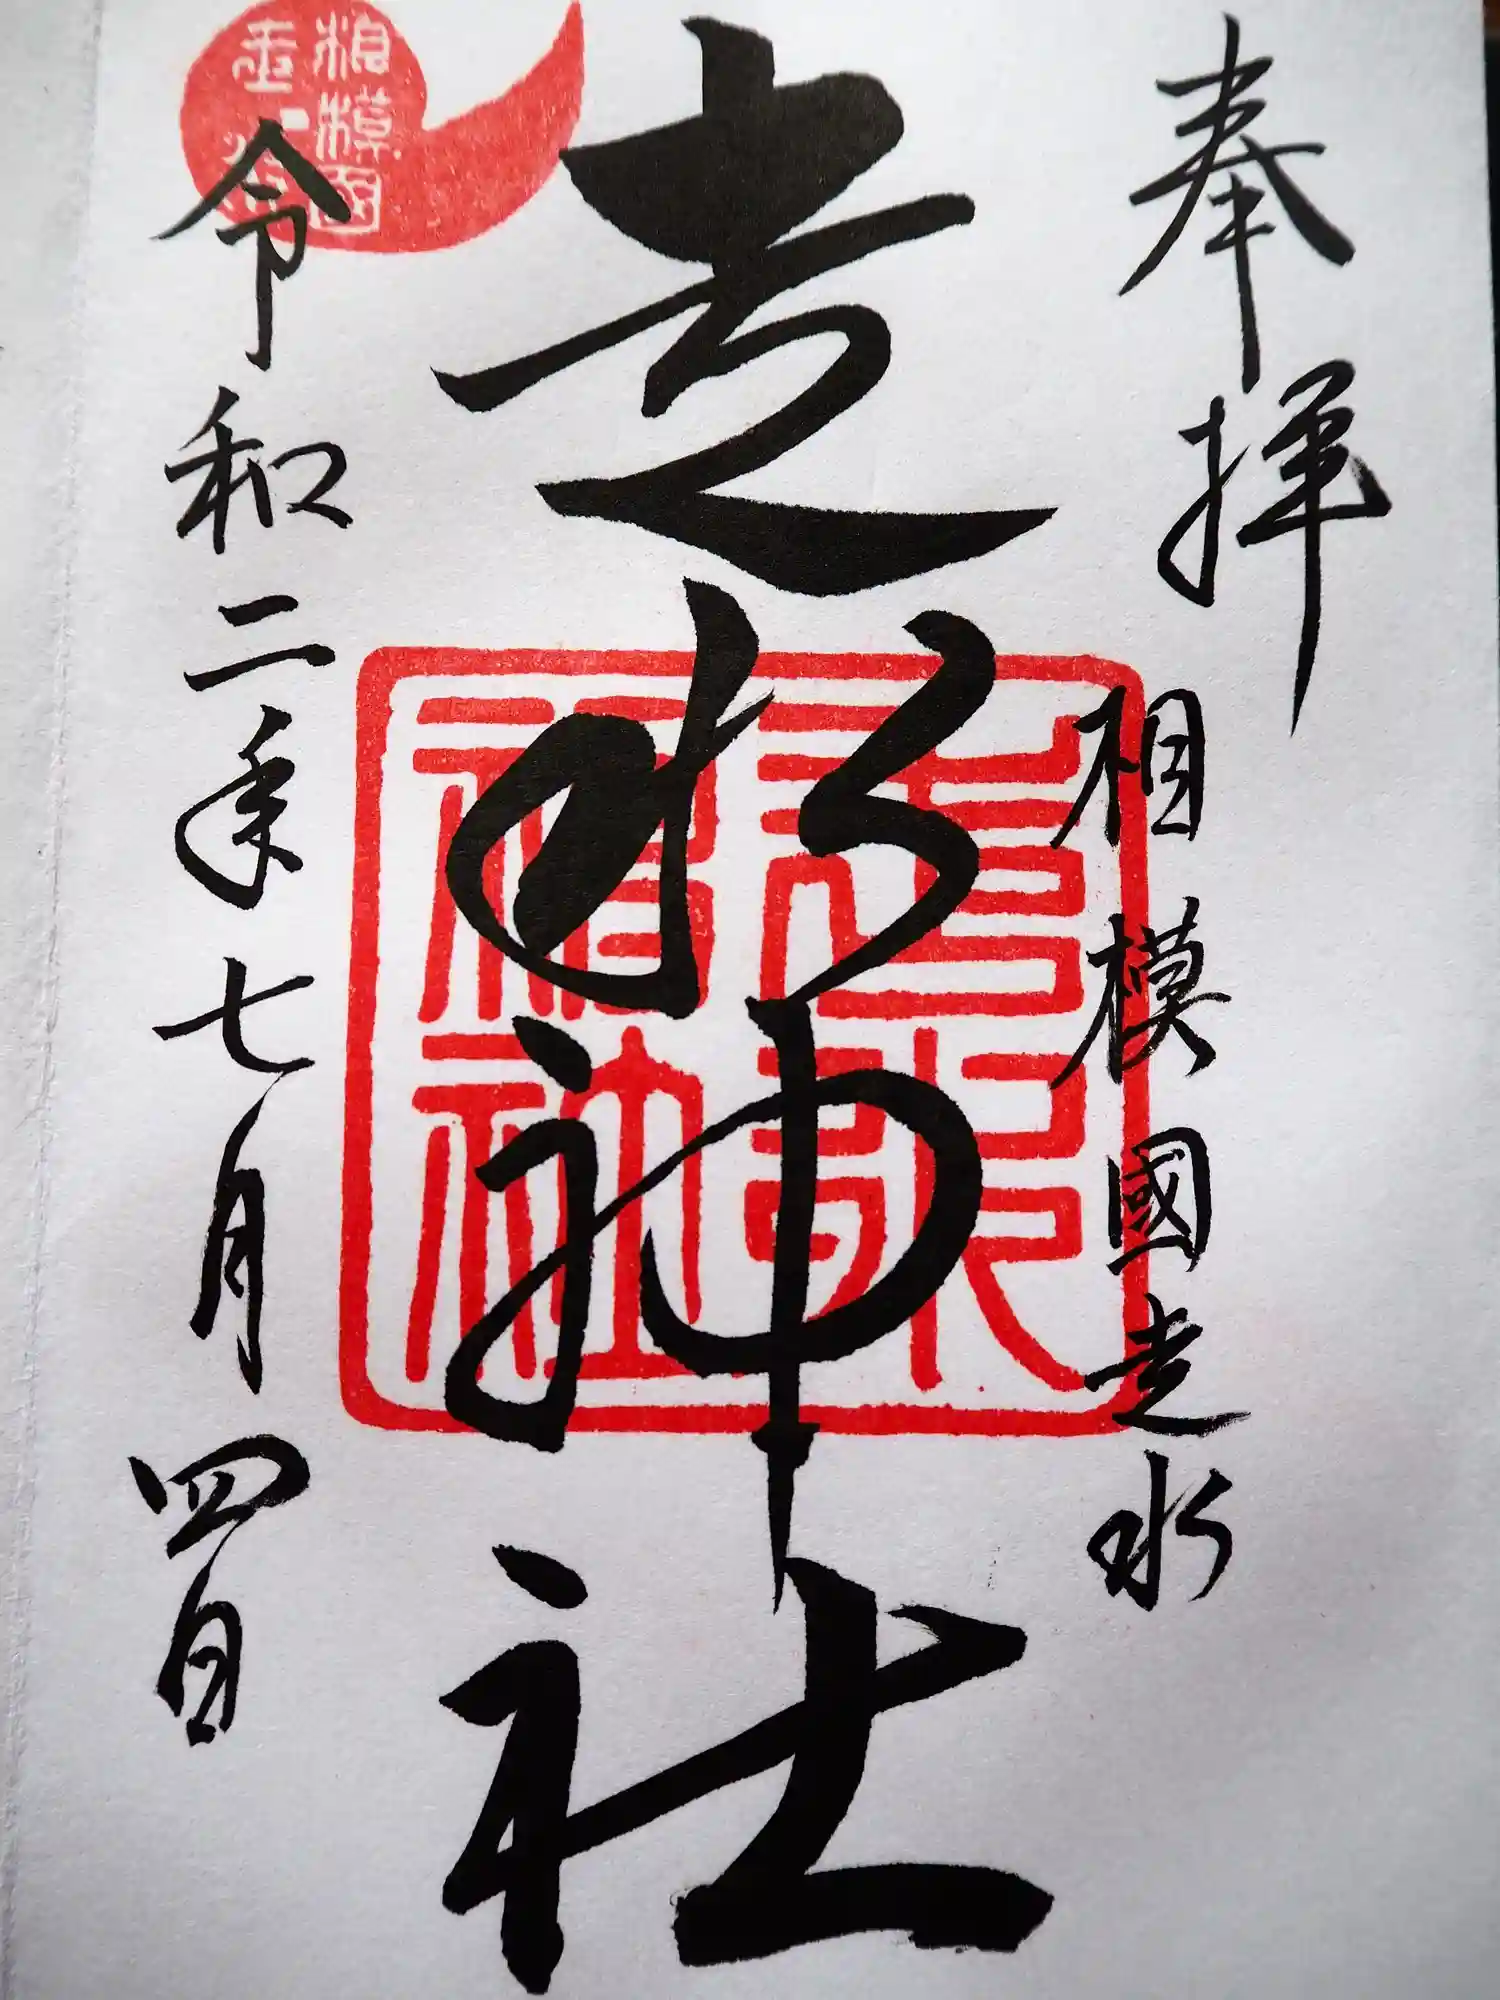 奉拝
相模國走水
走水神社
令和二年七月四日
相模國
走水
走水
神社